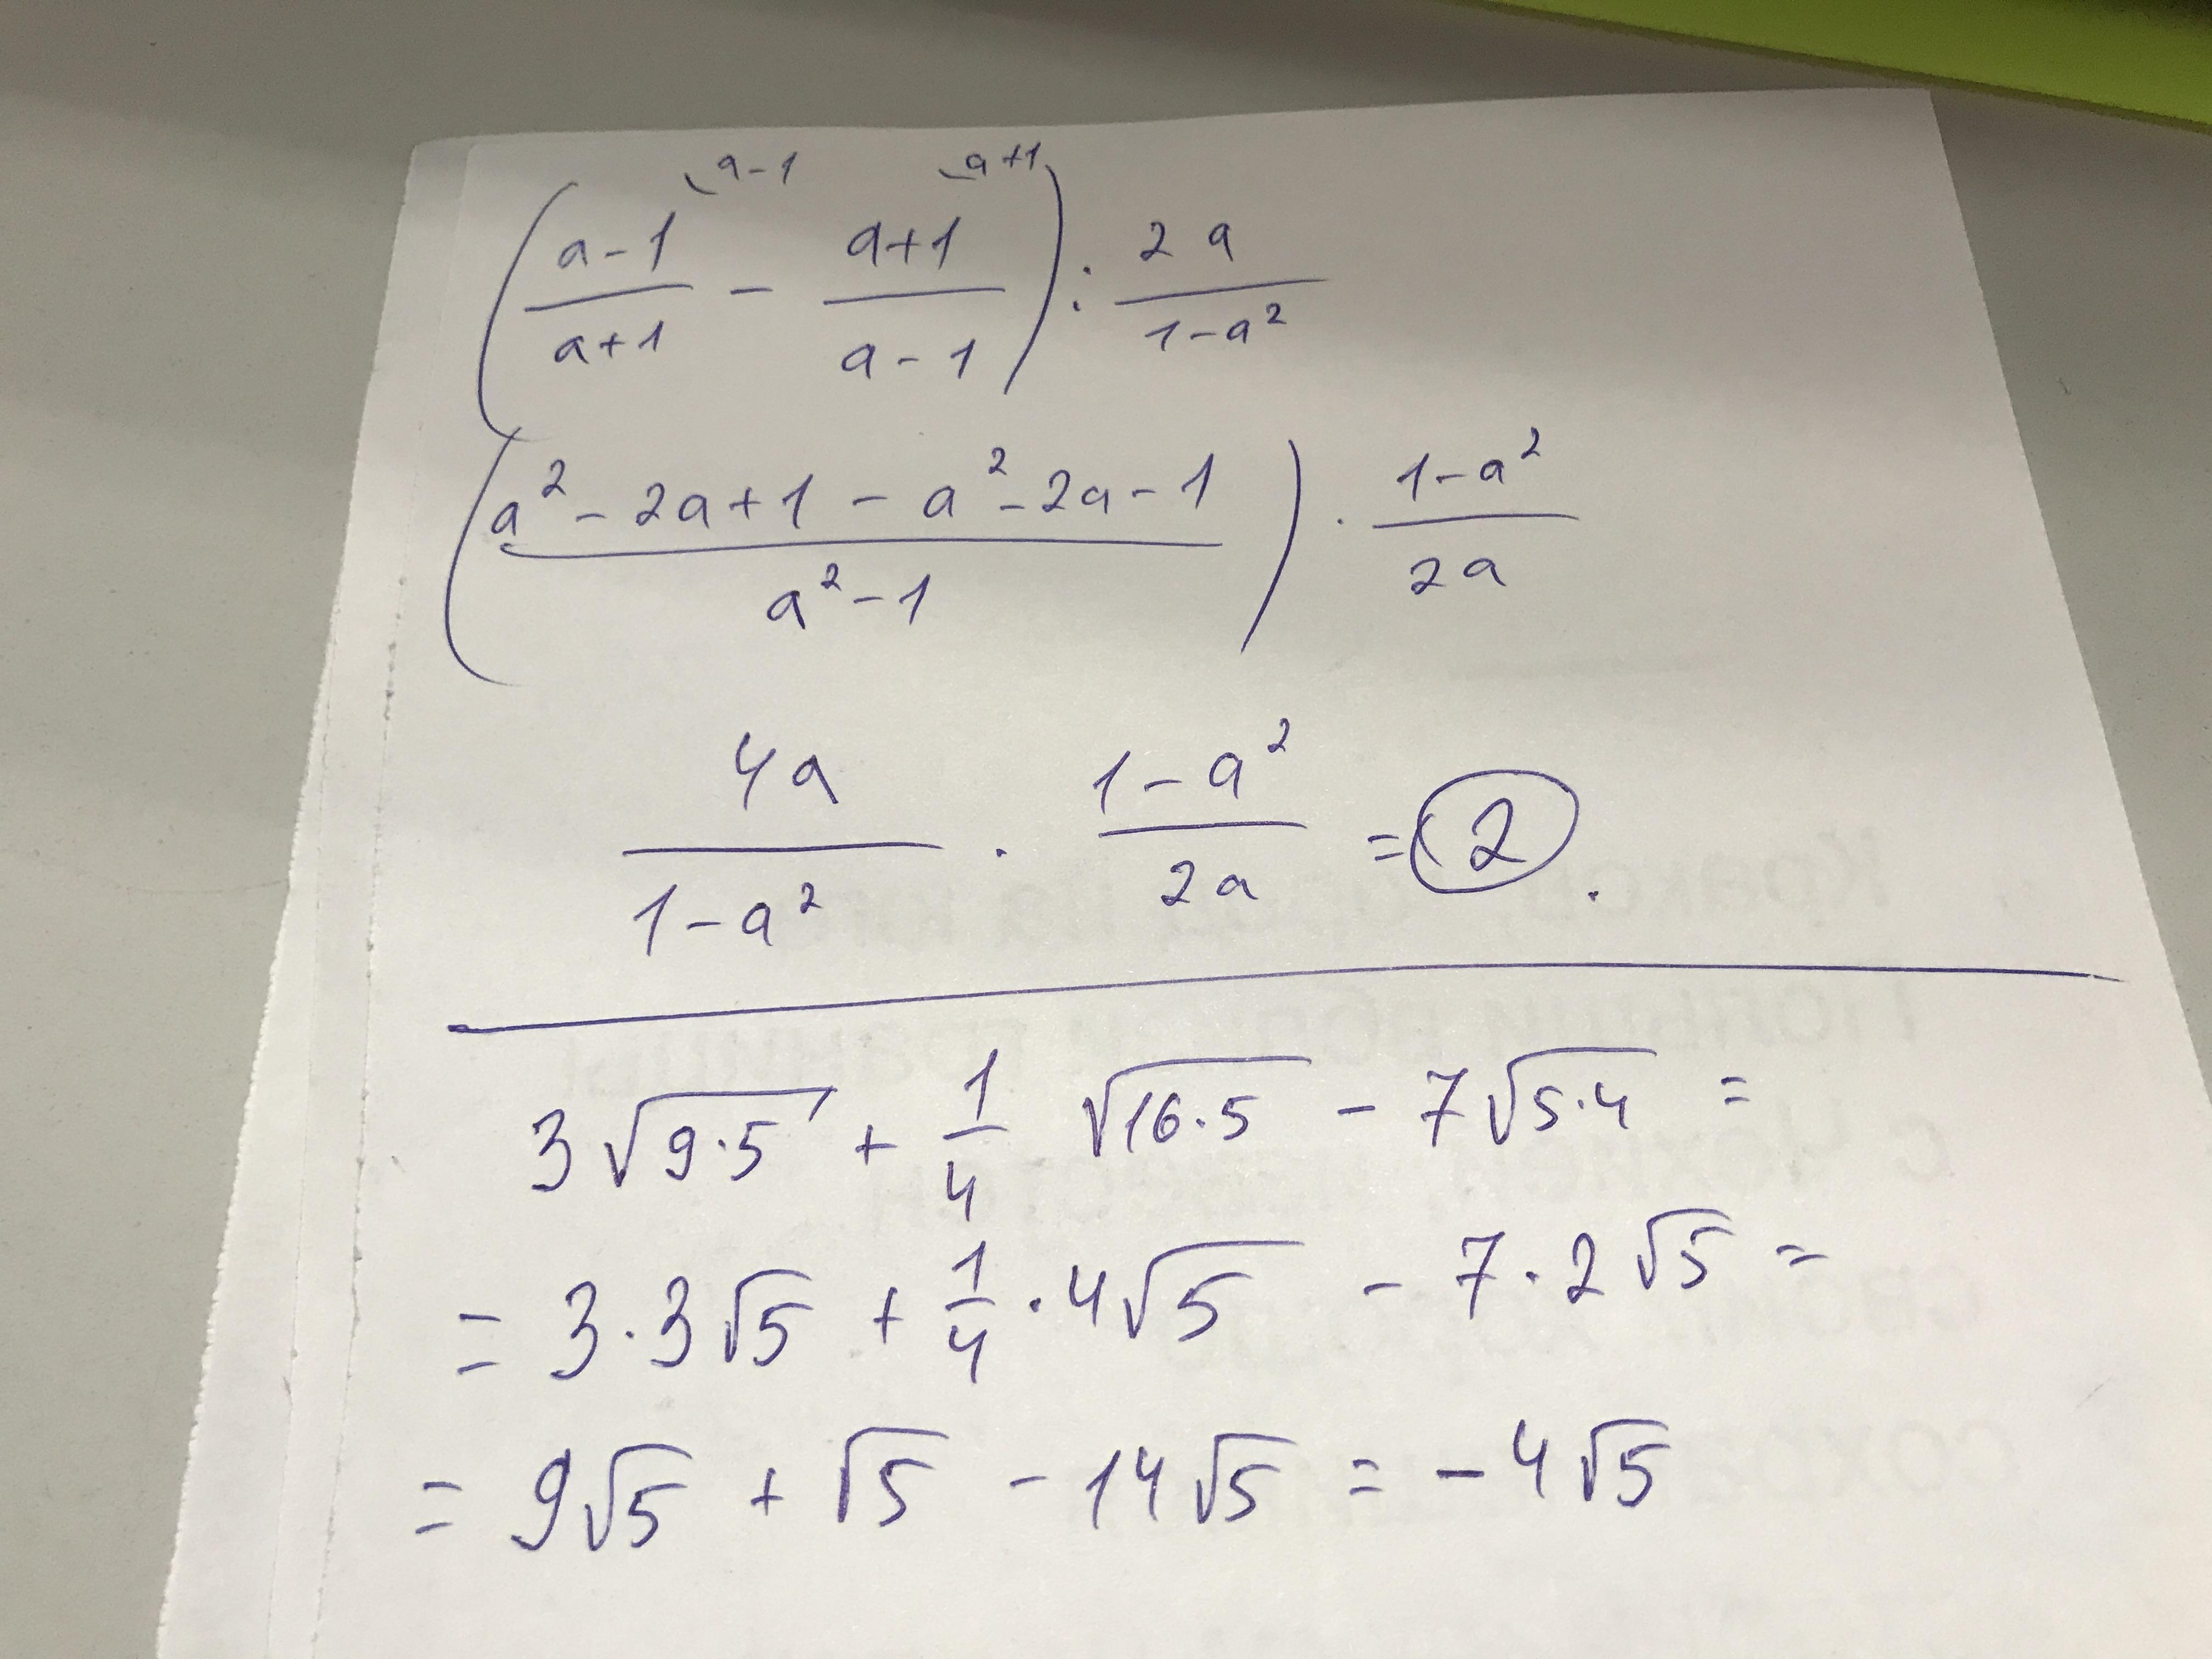 (a-1/a+1 - a+1/a-1) : 2a/1-a² \a-1 \a+1
(a²-2a+1-a²-2a-1/a²-1) · 1-a²/2a
4a/1-a² · 1-a²/2a = 2.
3√9·5 + 1/4 √16·5 - 7√5·4 =
= 3·3√5 + 1/4·4√5 - 7·2√5 =
= 9√5 + √5 - 14√5 = -4√5